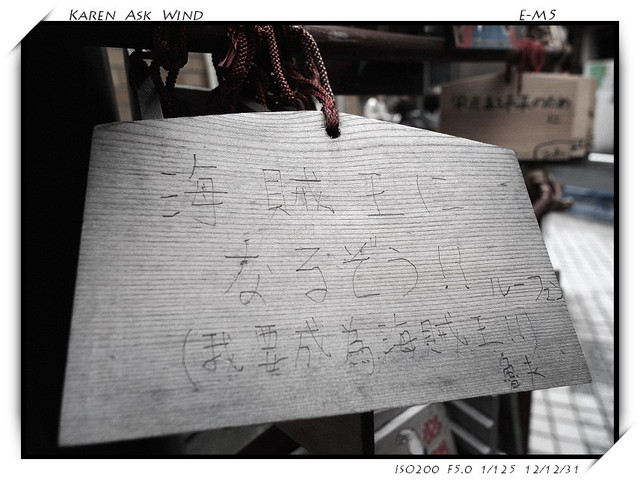 KAREN ASK WIND
E-M5
海賊王に
なるぞう!!
(我要成為海賊王!!)
魯夫
ISO200 F5.0 1/125 12/12/31